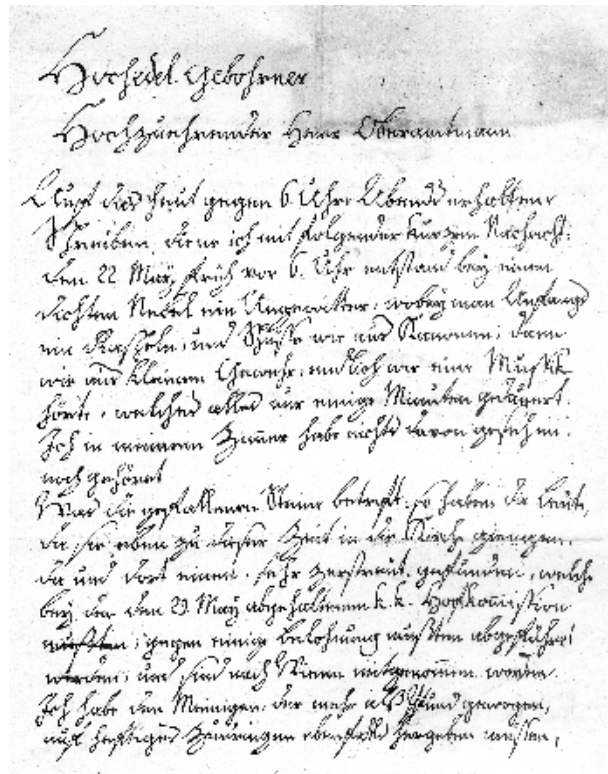 Hochedel Gebohrner
Hochzuehrender Herr Oberamtmann
Auf das heut gegen 6 Uhr Abends erhaltene
Schreiben diene ich mit folgender kurzen Nachricht:
Den 22 May, früh vor 6. Uhr entstand bey einem
dichten Nebel ein Ungewitter, wobey man Anfangs
ein Rasseln, und Schüsse wie aus Kanonen; dann
wie aus kleinem Gewehr, endlich wie eine Musikk
hörte, welches alles nur einige Minuten gedauert.
Ich in meinem Zimmer habe nichts davon gesehen,
noch gehöret
Was die gefallenen Steine betrift, so haben die Leute,
die sie eben zu dieser Zeit in die Kirche giengen,
da und dort einen, sehr zerstreut, gefunden, welche
bey der den 29 May abgehaltenen k. k. Hofkommission
mußten, gegen einige Belohnung mußten abgeführt
werden, und sind nach Wienn mitgenommen worden.
Ich habe den Meinigen, der mehr als Pfund gewogen,
auf heftiges Zudringen ebenfalls hergeben müssen,